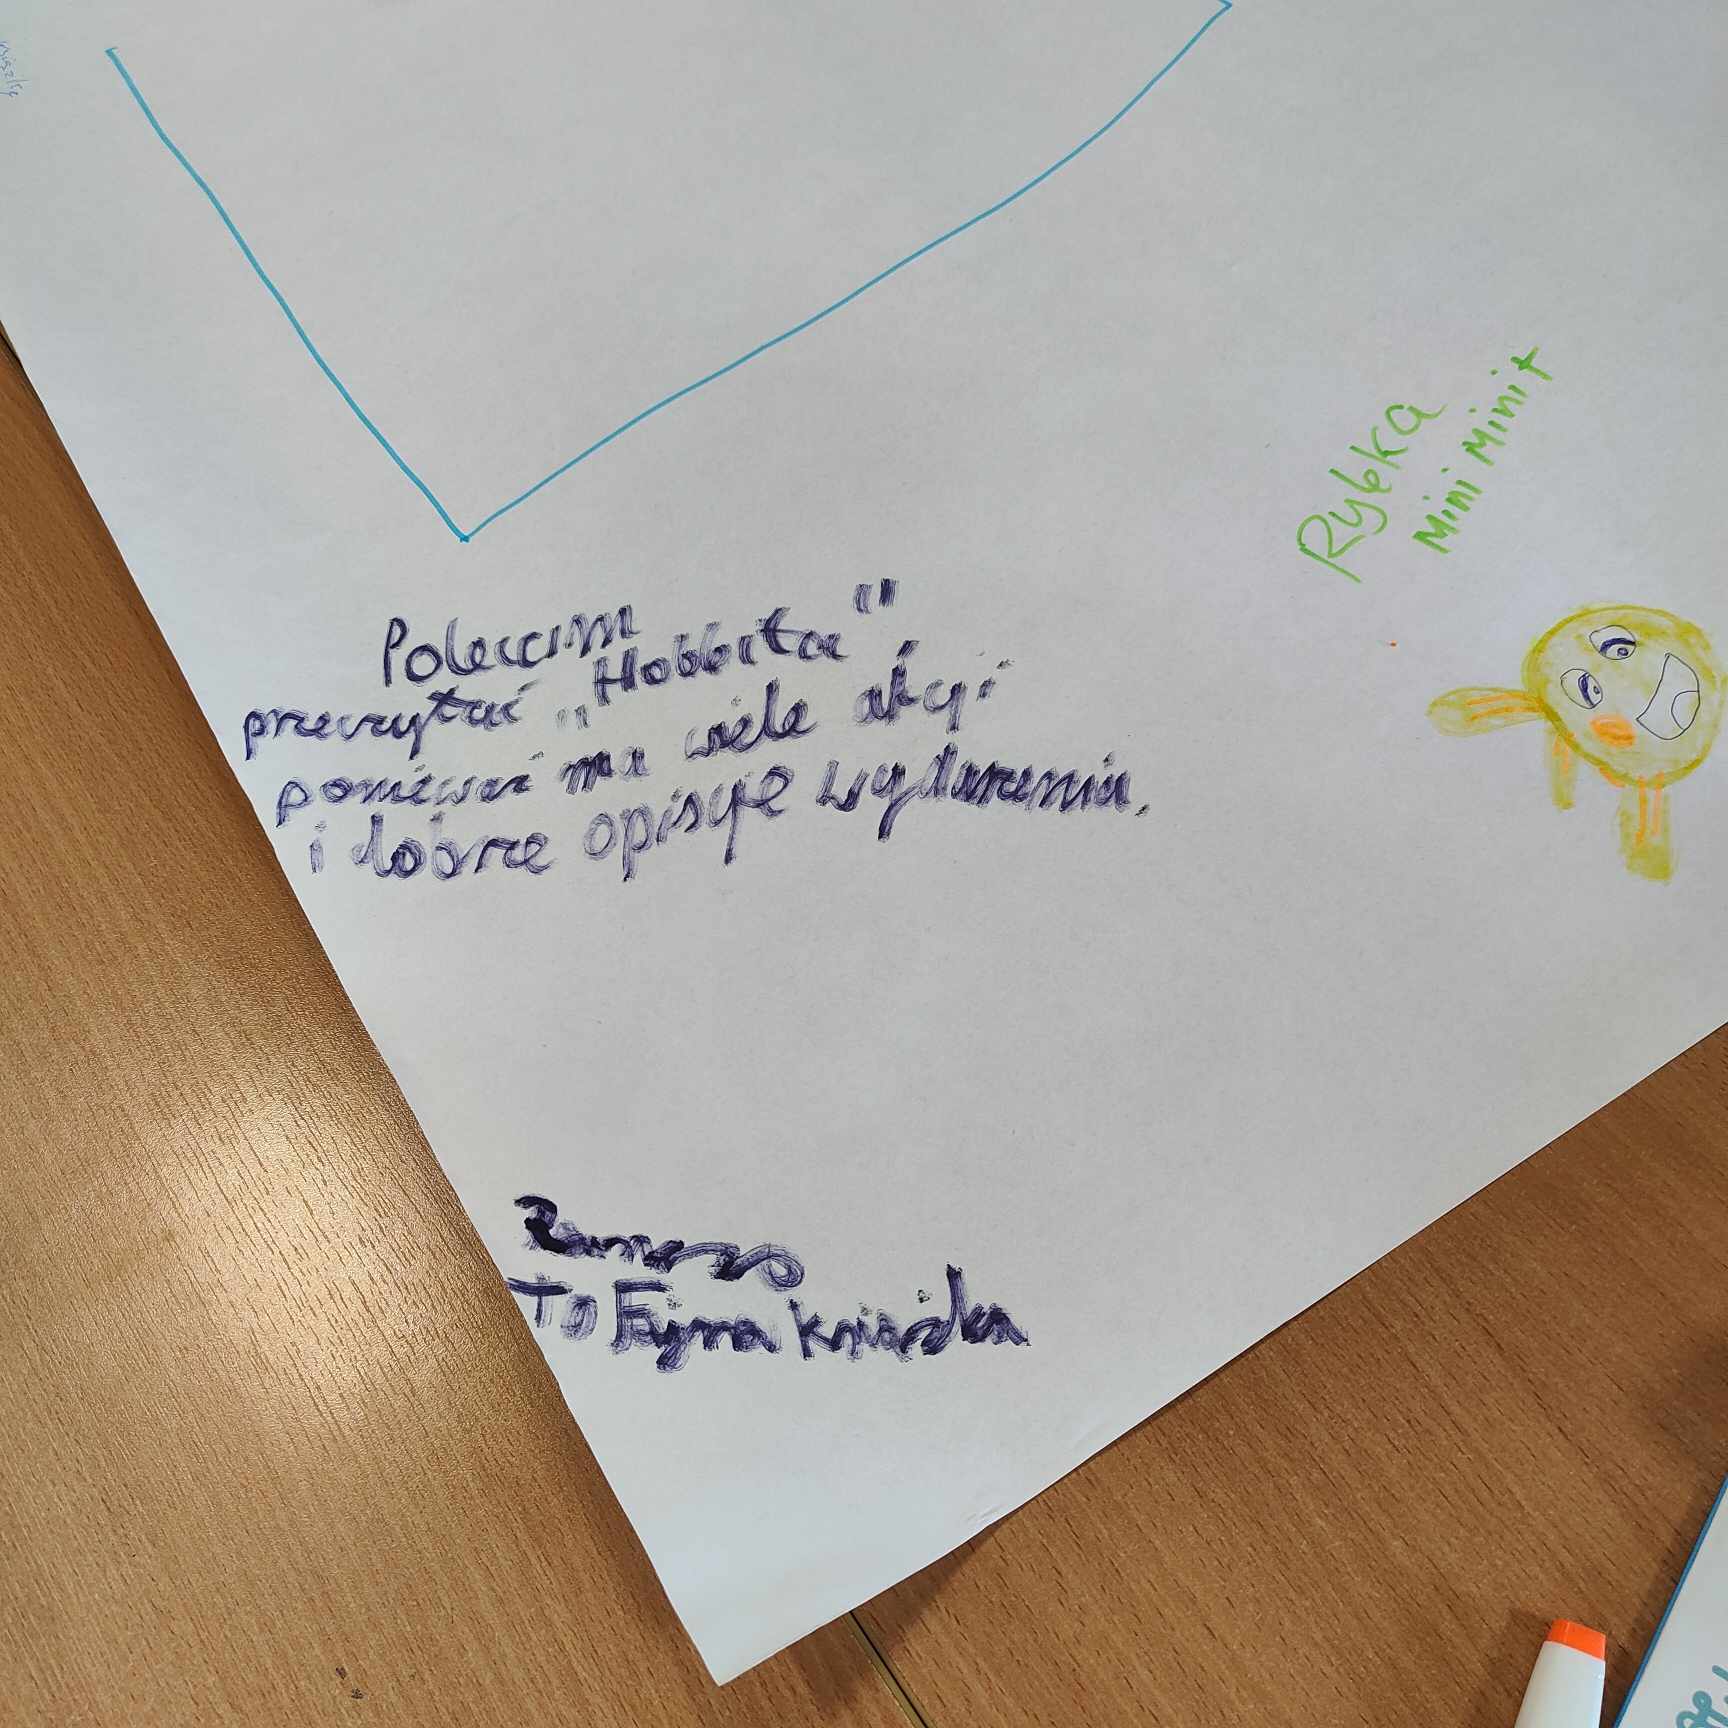 Rybka
Mini Mini+
Polecam
przeczytać „Hobbita",
ponieważ ma wiele akcji
i dobrze opisuje wydarzenia.
To Fajna książka